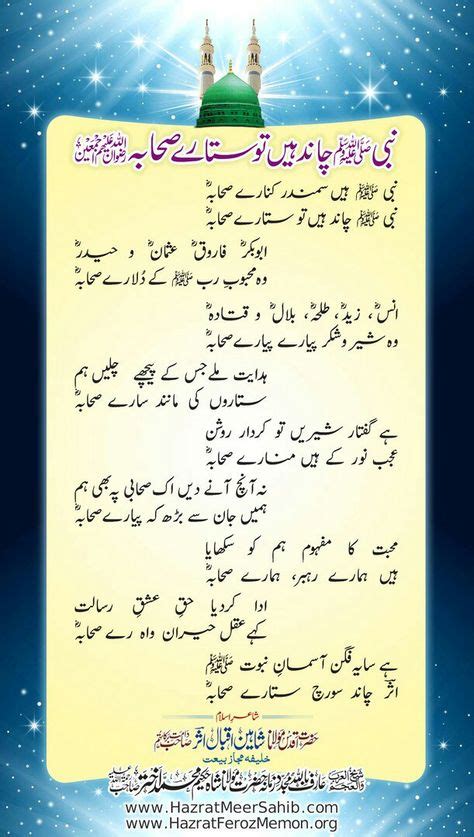 نبی ﷺ چاند ہیں تو ستارے صحابہ رضوان اللہ علیہم اجمعین
نبی ﷺ ہیں سمندر کنارے صحابہؓ
نبی ﷺ چاند ہیں تو ستارے صحابہؓ
ابوبکرؓ فاروقؓ عثمانؓ و حیدرؓ
وہ محبوبِ رب ﷺ کے دُلارے صحابہؓ
انسؓ، زیدؓ، طلحہؓ، بلالؓ و قتادہؓ
وہ شیر و شکر پیارے پیارے صحابہؓ
ہدایت ملے جس کے پیچھے چلیں ہم
ستاروں کی مانند سارے صحابہؓ
ہے گفتار شیریں تو کردار روشن
عجب نور کے ہیں منارے صحابہؓ
نہ آنچ آنے دیں اک صحابی پہ بھی ہم
ہمیں جان سے بڑھ کے پیارے صحابہؓ
محبت کا مفہوم ہم کو سکھایا
ہیں ہمارے رہبر، ہمارے صحابہؓ
ادا کردیا حقِ عشقِ رسالت
کہے عقل حیراں واہ رے صحابہؓ
ہے سایہ فگن آسمانِ نبوت ﷺ
اثرؔ چاند سورج ستارے صحابہؓ
شاعرِ اسلام
حضرت اقدس مولانا شاہین اقبال اثر صاحب
خلیفہ مجاز بیعت
شیخ العرب والعجم عارف باللہ مجدد زمانہ حضرت مولانا شاہ حکیم محمد اختر صاحب
www.HazratMeerSahib.com
www.HazratFerozMemon.org